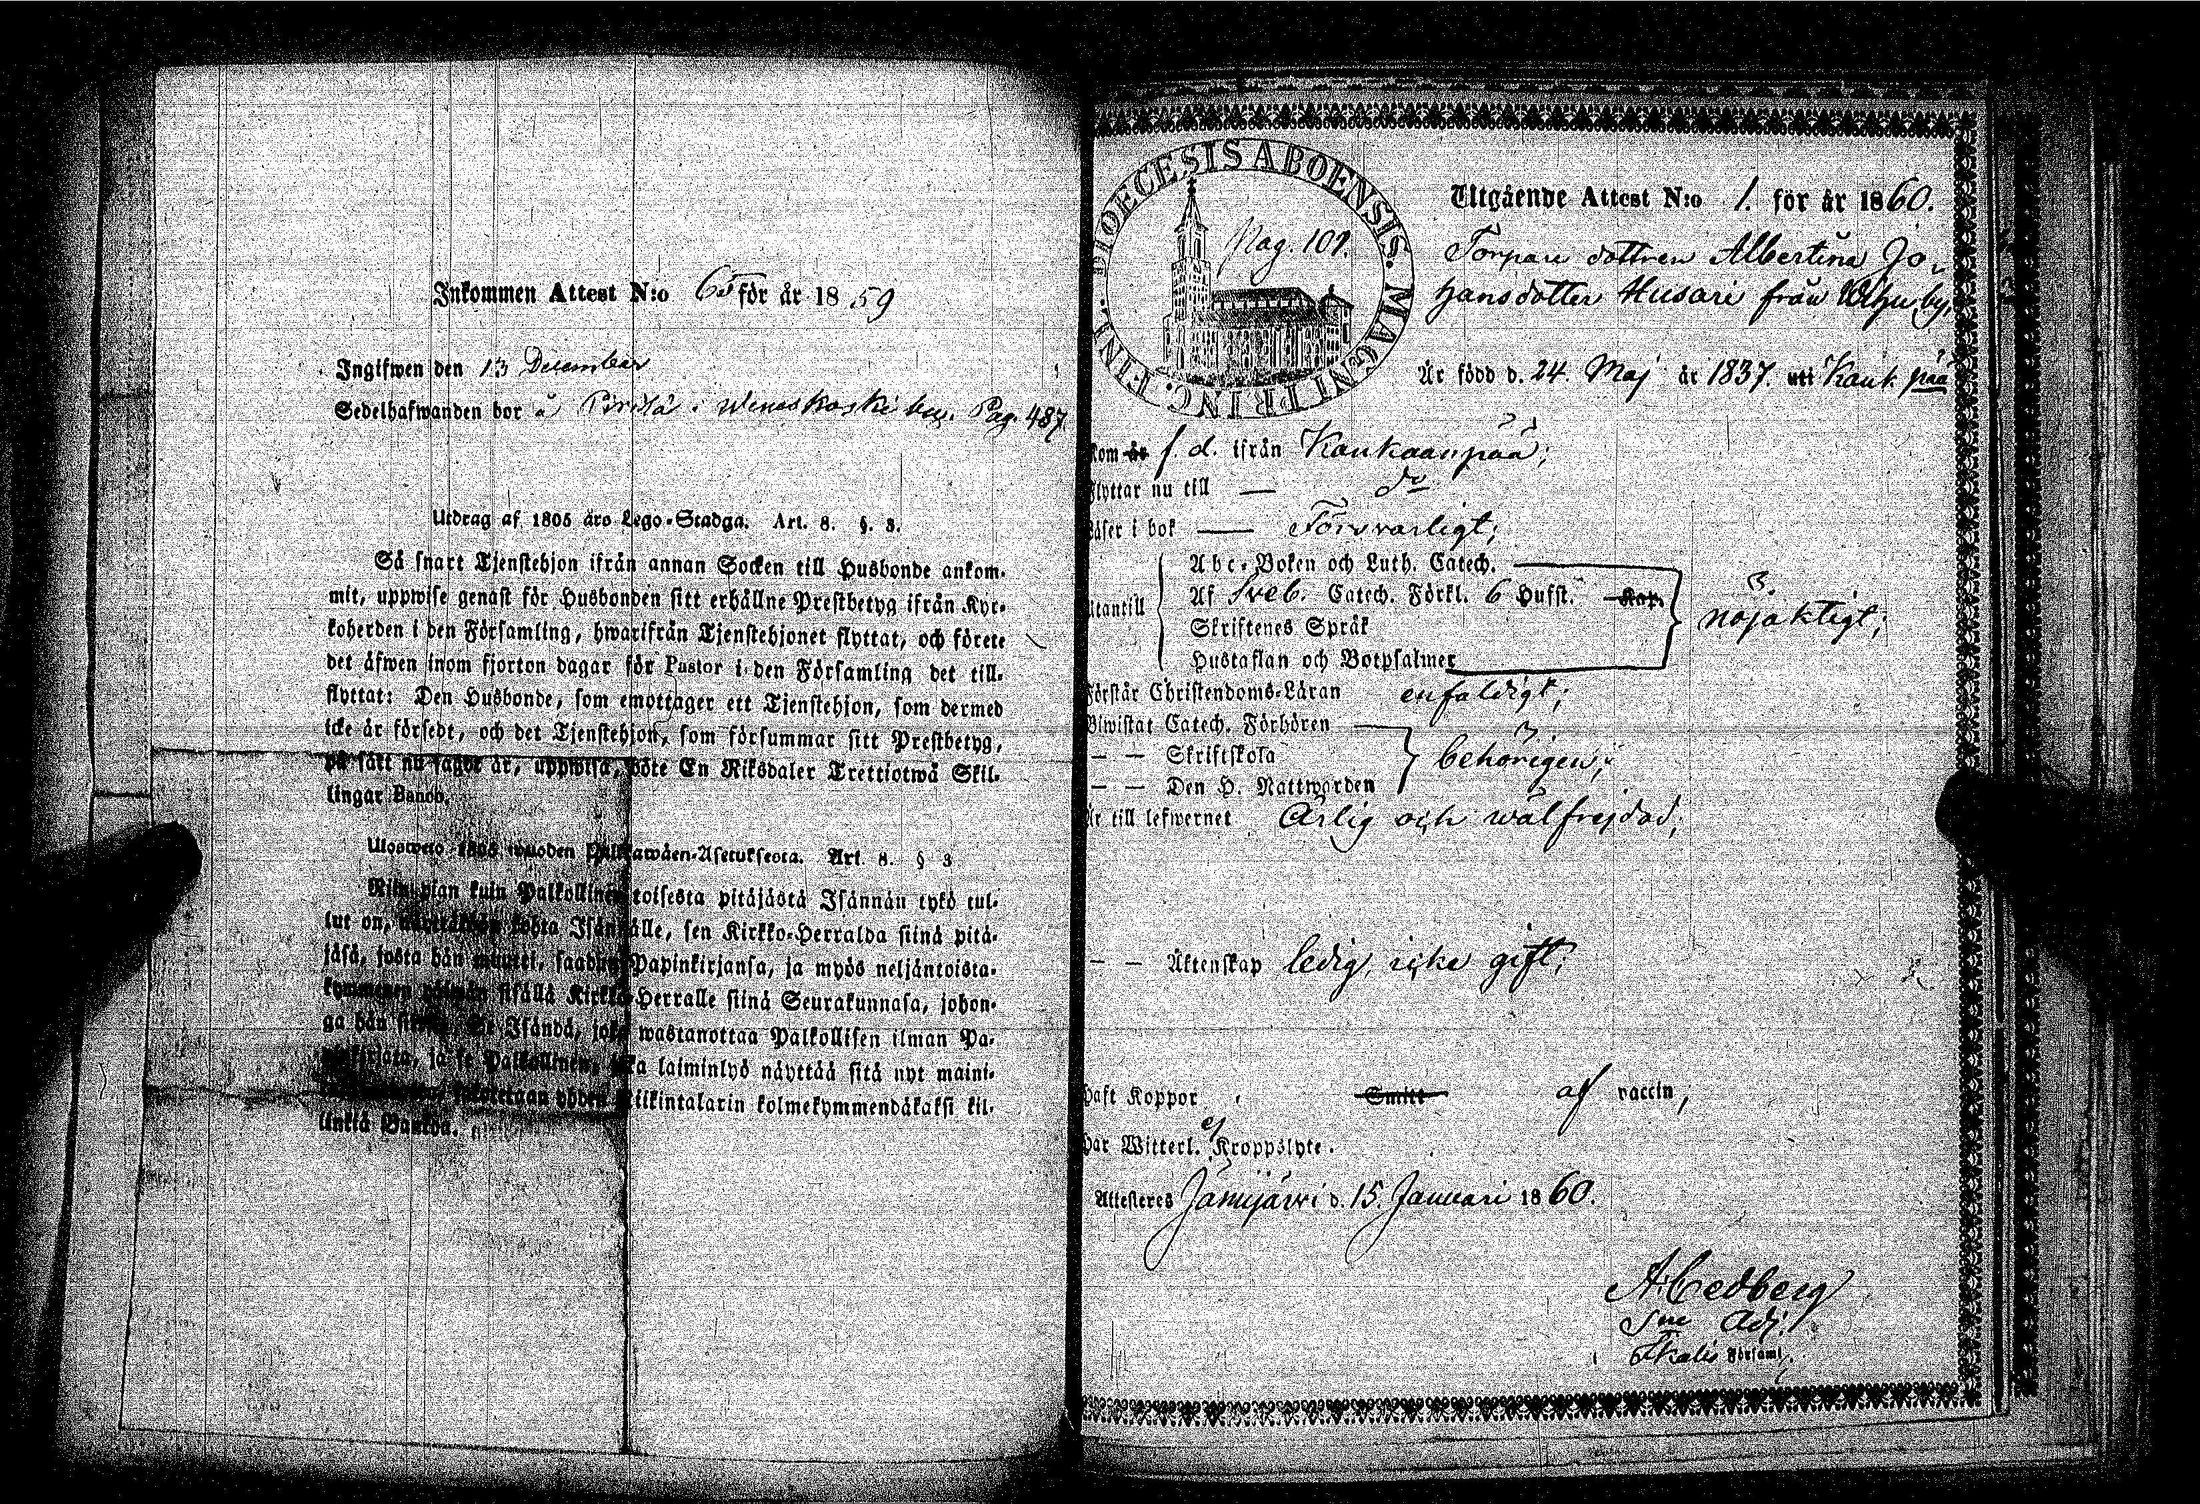 Inkommen Attest N:o 65 för år 1859
Ingifwen den 13 December
Sedelhafwanden bor å by. Pag. 487
Utdrag af 1805 års Lego-Stadga. Art. 8. §. 3.
Så snart Tjenstehjon ifrån annan Socken till Husbonde ankom-
mit, uppwise genast för Husbonden sitt erhållne Prestbetyg ifrån Kyr-
koherden i den Församling, hwarifrån Tjenstehjonet flyttat, och förete
det äfwen inom fjorton dagar för Pastor i den Församling det till-
flyttat: Den Husbonde, som emottager ett Tjenstehjon, som dermed
icke är försedt, och det Tjenstehjon, som försummar sitt Prestbetyg,
på sätt nu sagdt är, uppwisa, böte En Riksdaler Trettiotwå Skil-
lingar Banco.
1805 wuoden Art. 8. § 3
Niin pian kuin Palkollinen toisesta pitäjästä Isännän tykö tul-
lut on, kohta Isännälle, sen Kirkko-Herralda siinä pitä-
jäsä, josta hän muutti, saadun Papinkirjansa, ja myös neljäntoista-
sisällä Kirkko-Herralle siinä Seurakunnasa, johon-
ga hän Isändä, joka wastanottaa Palkollisen ilman Pa-
ja se Palkollinen, joka laiminlyö näyttää sitä nyt maini-
yhden Riikintalarin kolmekymmendäkaksi kil-
linkiä Bankoa.
DIOECESIS ABOENSIS. MAGNI PRINC. FINL.
Pag. 101.
Utgående Attest N:o 1. för år 1860.
Torpare dottren Albertina Jo-
hansdotter Husari från by,
Är född d. 24 Maj år 1837. uti Kank. pää
Kom år f. d. ifrån Kankaanpää;
Flyttar nu till — do
Läser i bok — Försvarligt;
Utantill
Abc-Boken och Luth. Catech.
Af Sveb. Catech. Förkl. 6 Hufst. Kap.
Skriftenes Språk
Hustaflan och Botpsalmer
nöjaktigt;
Förstår Christendoms-Läran enfaldigt;
Biwistat Catech. Förhören
— — Skriftskola
— — Den H. Nattwarden
behörigen;
Är till lefwernet Ärlig och wälfrejdad;
— — Äktenskap ledig, icke gift;
Haft Koppor Smitt af vaccin,
Har Witterl. ej Kroppslyte.
Attesteres Jämijärwi d. 15. Januari 1860.
A Cedberg
Adj.
Församl.